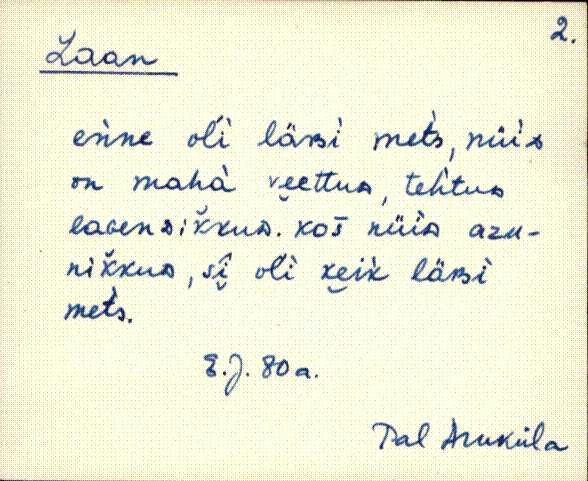 2.
Laan
enne oĺi länsi met́s, nüiᴅ
on mahà veettuᴅ, teh́tuᴅ
lagenᴅikkuᴅ. kos nüiᴅ azu-
nikkuᴅ, sî oĺi keik länsi
met́s.
E.J. 80 a.
Tal Aruküla